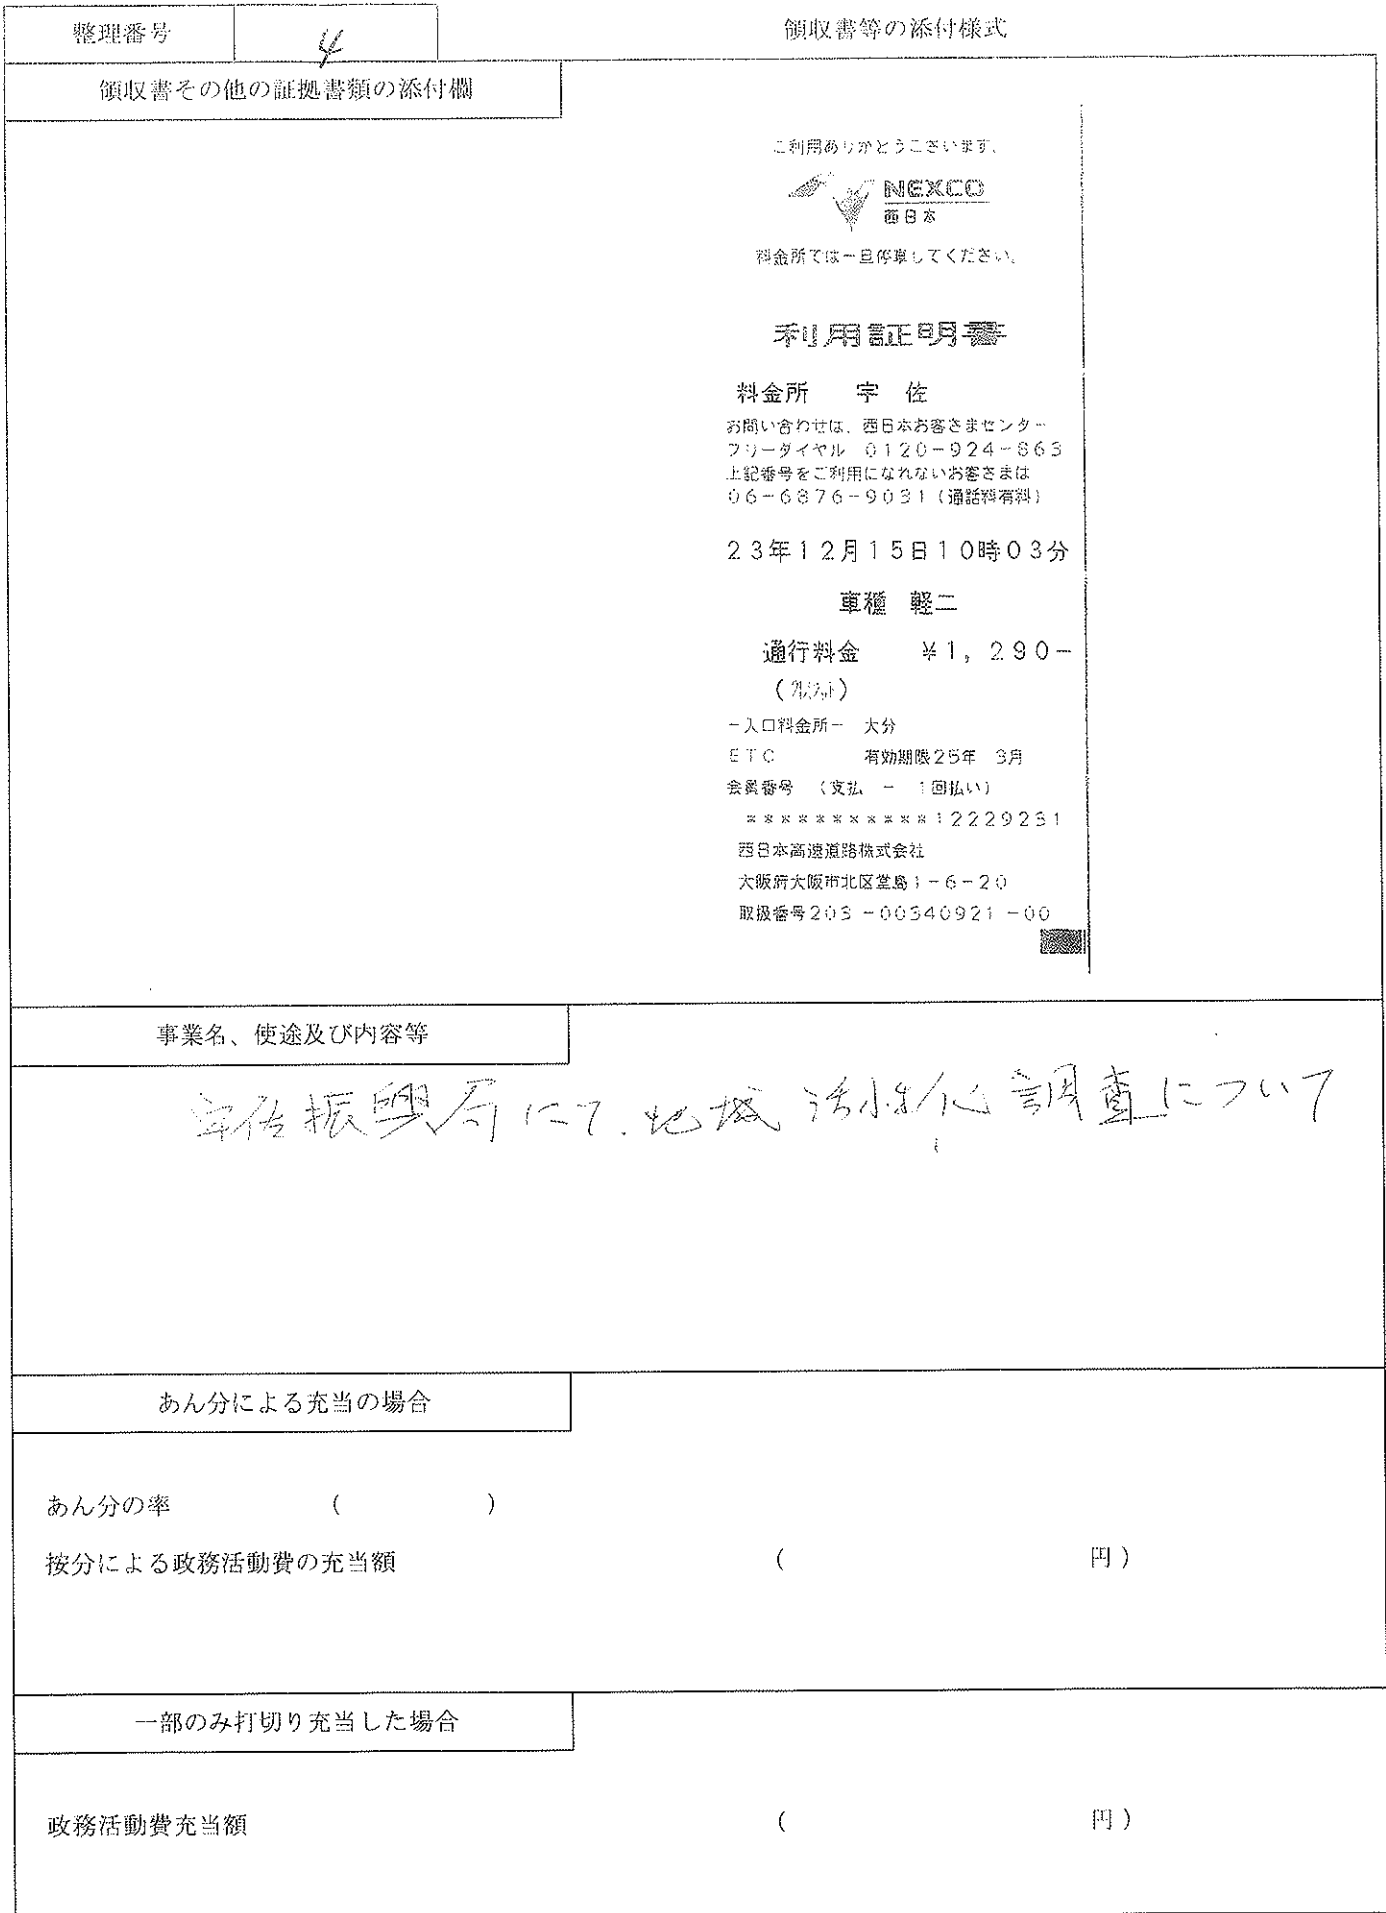 整理番号 4 領収書等の添付様式
領収書その他の証拠書類の添付欄
ご利用ありがとうございます。
NEXCO
西日本
料金所では一旦停車してください。
利用証明書
料金所 宇 佐
お問い合わせは、西日本お客さまセンター
フリーダイヤル 0120-924-863
上記番号をご利用になれないお客さまは
06-6876-9031(通話料有料)
23年12月15日10時03分
車種 軽二
通行料金 ¥1,290-
(クレジット)
-入口料金所- 大分
ETC 有効期限25年 3月
会員番号 (支払 - 1回払い)
***********12229231
西日本高速道路株式会社
大阪府大阪市北区堂島1-6-20
取扱番号203-00340921-00
事業名、使途及び内容等
宇佐振興局にて、地域活性化調査について
あん分による充当の場合
あん分の率 ( )
按分による政務活動費の充当額 ( 円)
一部のみ打切り充当した場合
政務活動費充当額 ( 円)